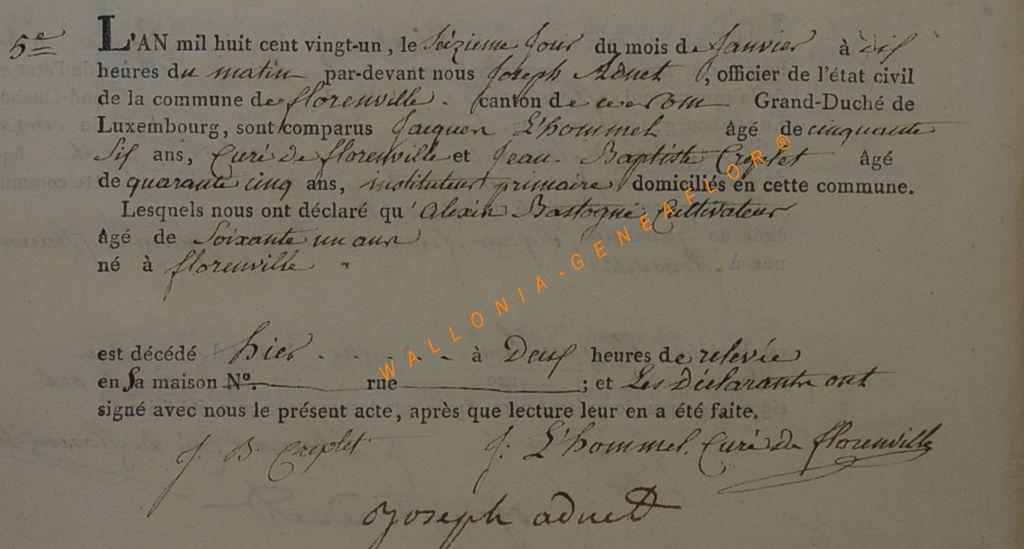 5e L'AN mil huit cent vingt-un, le Seizieme Jour du mois de Janvier à dix
heures du matin par-devant nous Joseph Adnet, officier de l'état civil
de la commune de florenville. canton de Grand-Duché de
Luxembourg, sont comparus Jacques L'hommel âgé de cinquante
Six ans, Curé de florenville et Jean-Baptiste Creplet âgé
de quarante cinq ans, instituteur primaire domiciliés en cette commune.
Lesquels nous ont déclaré qu'alexis Bastogne Cultivateur
âgé de Soixante un ans
né à florenville
est décédé hier - - - - à Deux heures de relevée
en Sa maison N°. rue ; et Les Déclarants ont
signé avec nous le présent acte, après que lecture leur en a été faite.
J. B. Creplet J. L'hommel. Curé de florenville
Joseph adnet
WALLONIA-GENEAFLOR®